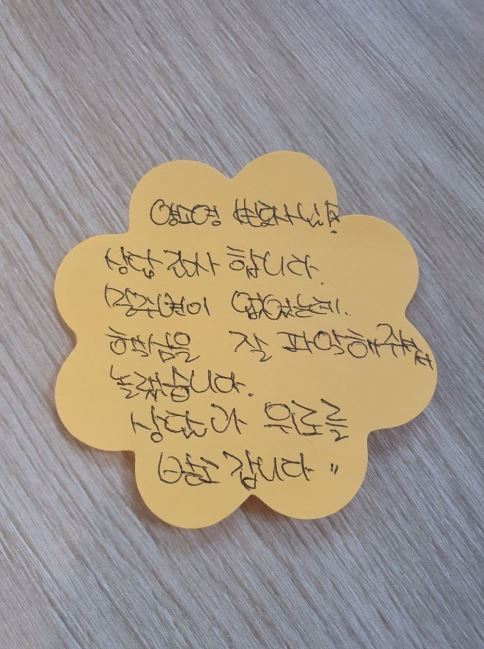 변호사님!
상담 감사 합니다.
말주변이 없었는데.
핵심을 잘 파악해주셔서
놀랐습니다.
상담과 위로를
받고 갑니다 "